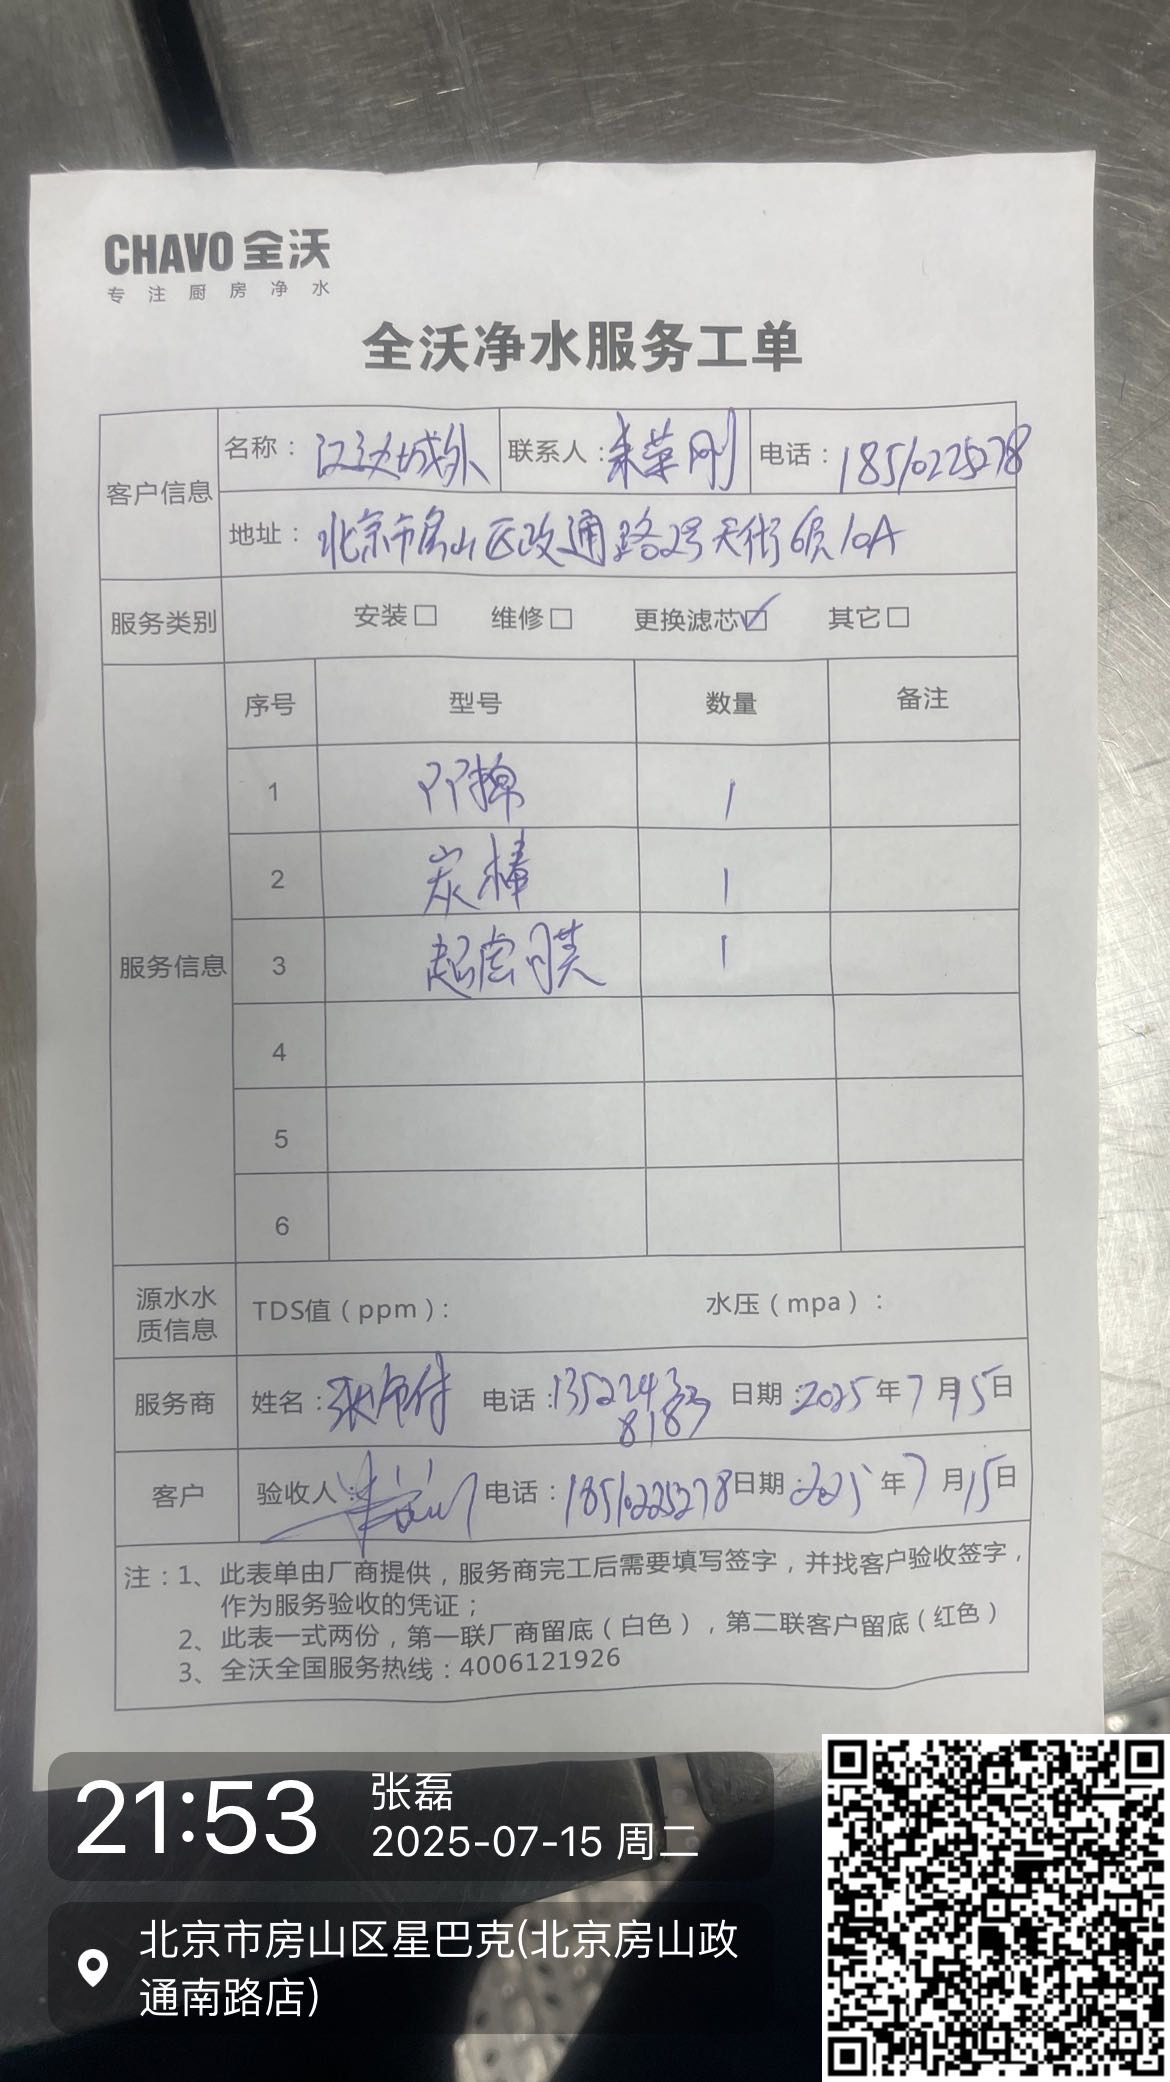 CHAVO 全沃
专注厨房净水
全沃净水服务工单
客户信息
名称：江边城外 联系人：朱荣刚 电话：18510225278
地址：北京市房山区政通路2号天街6层10A
服务类别 安装□ 维修□ 更换滤芯☑ 其它□
服务信息
序号 型号 数量 备注
1 PP棉 1
2 炭棒 1
3 超滤膜 1
4
5
6
源水水质信息 TDS值（ppm）： 水压（mpa）：
服务商 姓名： 电话： 日期：2025年7月15日
客户 验收人： 电话：18510225278 日期：2025年7月15日
注：1、此表单由厂商提供，服务商完工后需要填写签字，并找客户验收签字，
作为服务验收的凭证；
2、此表一式两份，第一联厂商留底（白色），第二联客户留底（红色）
3、全沃全国服务热线：4006121926
21:53
张磊
2025-07-15 周二
北京市房山区星巴克(北京房山政
通南路店)